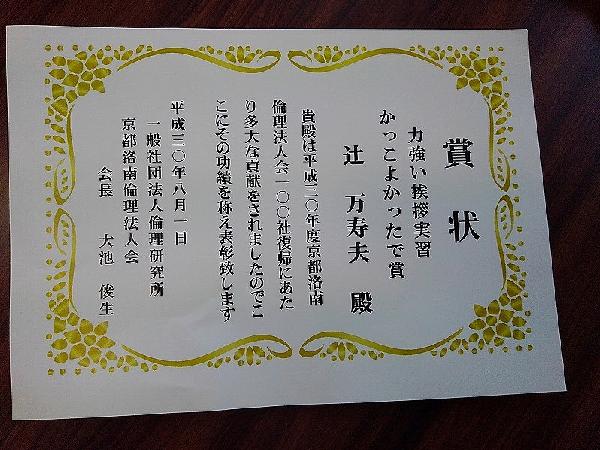 賞状
力強い挨拶実習
かっこよかったで賞
辻 万寿夫 殿
貴殿は平成二〇年度京都洛南
倫理法人会一〇〇社復帰にあた
り多大な貢献をされましたのでこ
こにその功績を称え表彰致します
平成三〇年八月一日
一般社団法人倫理研究所
京都洛南倫理法人会
会長 大池 俊生